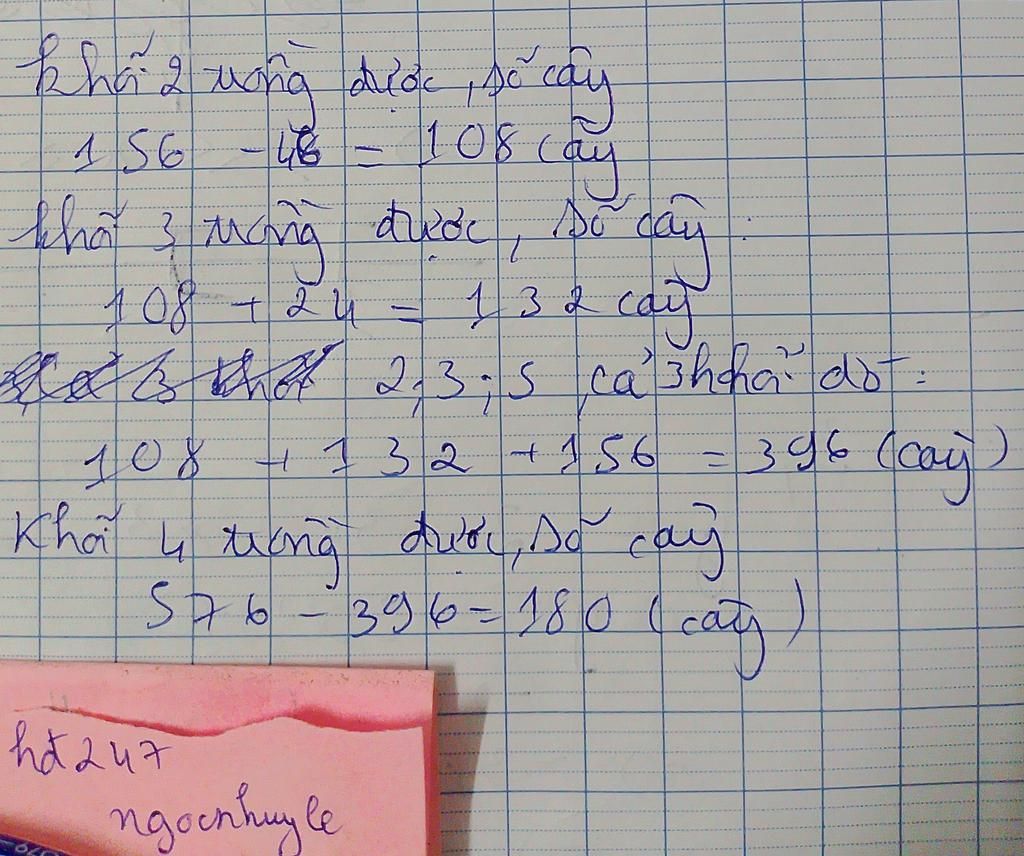 Khối 2 trồng được số cây
156 - 48 = 108 cây
Khối 3 trồng được số cây:
108 + 24 = 132 cây
2; 3; 5 cả 3 khối đó:
108 + 132 + 156 = 396 (cây)
Khối 4 trồng được số cây
576 - 396 = 180 (cây)
hd247
ngocnhuyle